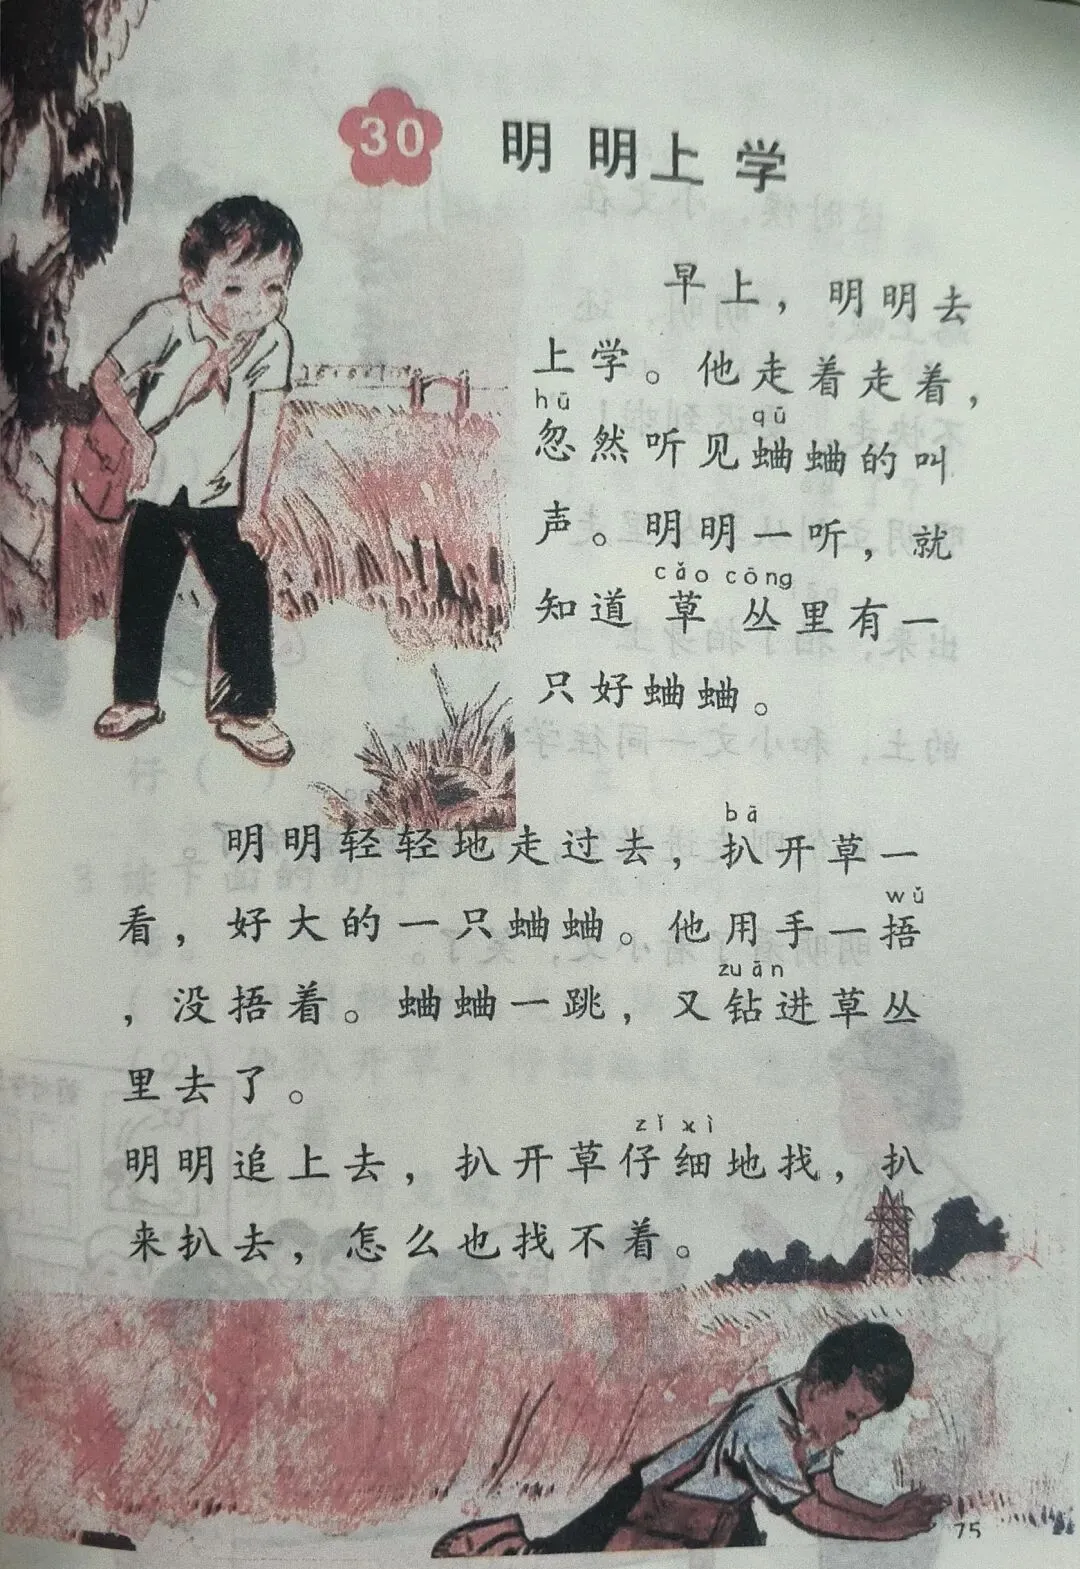 30 明明上学
早上，明明去
上学。他走着走着，
hū qū
忽然听见蛐蛐的叫
声。明明一听，就
cǎo cōng
知道草丛里有一
只好蛐蛐。
bā
明明轻轻地走过去，扒开草一
wǔ
看，好大的一只蛐蛐。他用手一捂
zuān
，没捂着。蛐蛐一跳，又钻进草丛
里去了。
zǐ xì
明明追上去，扒开草仔细地找，扒
来扒去，怎么也找不着。
75